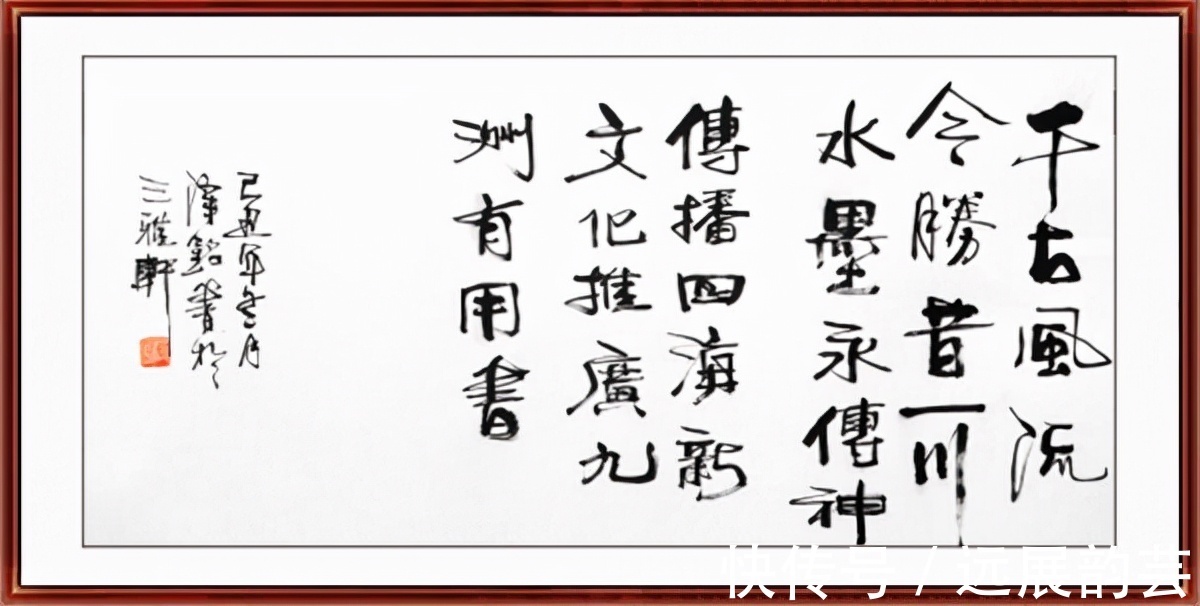 千古風流
今勝昔一川
水墨永傳神
傳播四海新
文化推廣九
洲有用書
己丑年冬月
澤銘書於
三雅軒
快传号 / 远展韵芸